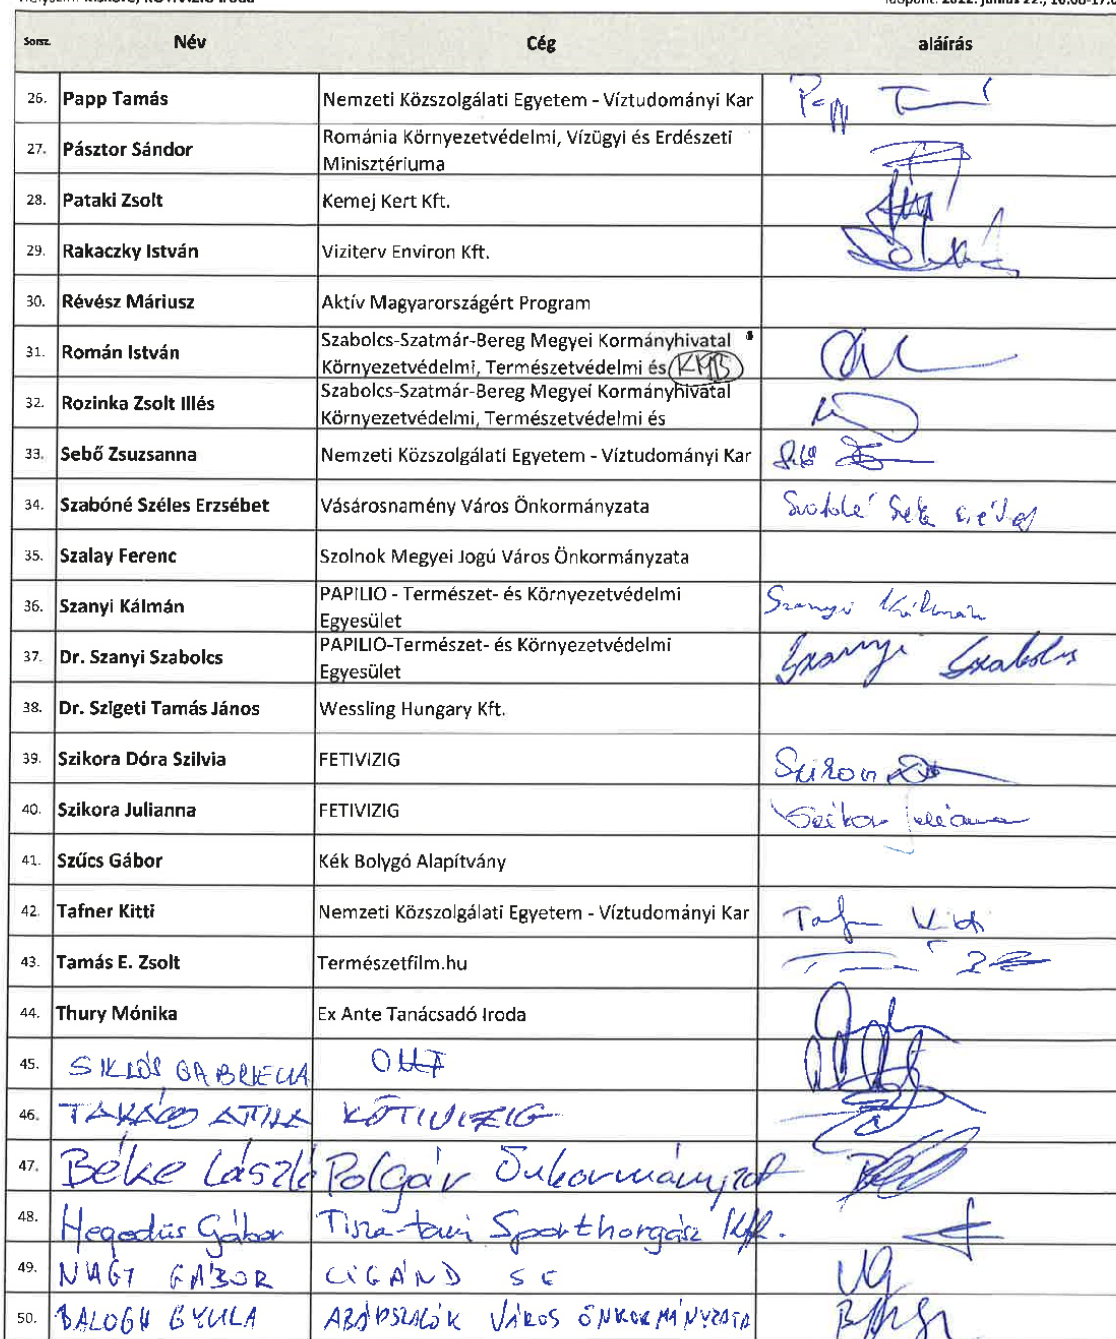 Sorsz. Név Cég aláírás
26. Papp Tamás Nemzeti Közszolgálati Egyetem - Víztudományi Kar
27. Pásztor Sándor Románia Környezetvédelmi, Vízügyi és Erdészeti
Minisztériuma
28. Pataki Zsolt Kemej Kert Kft.
29. Rakaczky István Viziterv Environ Kft.
30. Révész Máriusz Aktív Magyarországért Program
31. Román István Szabolcs-Szatmár-Bereg Megyei Kormányhivatal
Környezetvédelmi, Természetvédelmi és KMB
32. Rozinka Zsolt Illés Szabolcs-Szatmár-Bereg Megyei Kormányhivatal
Környezetvédelmi, Természetvédelmi és
33. Sebő Zsuzsanna Nemzeti Közszolgálati Egyetem - Víztudományi Kar
34. Szabóné Széles Erzsébet Vásárosnamény Város Önkormányzata
35. Szalay Ferenc Szolnok Megyei Jogú Város Önkormányzata
36. Szanyi Kálmán PAPILIO - Természet- és Környezetvédelmi
Egyesület Szanyi Kálmán
37. Dr. Szanyi Szabolcs PAPILIO-Természet- és Környezetvédelmi
Egyesület Szanyi Szabolcs
38. Dr. Szigeti Tamás János Wessling Hungary Kft.
39. Szikora Dóra Szilvia FETIVIZIG
40. Szikora Julianna FETIVIZIG
41. Szűcs Gábor Kék Bolygó Alapítvány
42. Tafner Kitti Nemzeti Közszolgálati Egyetem - Víztudományi Kar
43. Tamás E. Zsolt Természetfilm.hu
44. Thury Mónika Ex Ante Tanácsadó Iroda
45. SIKLÓS GABRIELLA
46. TAKÁCS ATTILA KÖTIVIZIG
47. Béke László Polgár Önkormányzat
48. Hegedüs Gábor Tisza-tavi Sporthorgász Kft.
49. NAGY GÁBOR CIGÁND SE
50. BALOGH GYULA ABÁDSZALÓK VÁROS ÖNKORMÁNYZATA